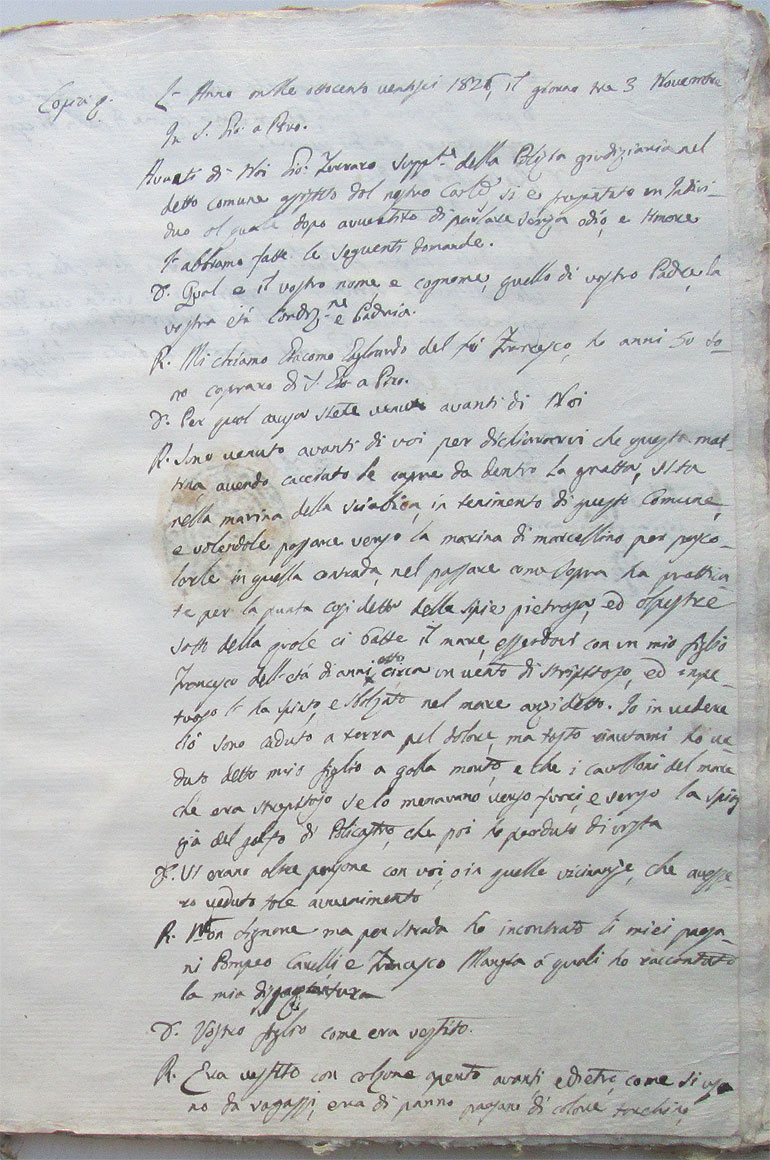 Copia p.
L'Anno mille ottocento ventisei 1826, il giorno tre 3 Novembre
In S. Gio: a Piro.
Avanti di Noi Gio: Ferraro Suppl.e della Polizia giudiziaria nel
detto comune assistito dal nostro Canc.e si è presentato un Indivi-
duo al quale dopo avvertito di parlare senza odio, e timore
l'abbiamo fatte le seguenti domande.
D. Qual e il vostro nome, e cognome, quello di vostro Padre, la
vostra età Condiz.ne, e Padria.
R. Mi chiamo Giacomo Pagliardo del fu Francesco, ho anni 50 so-
no capraro di S. Gio a Piro.
D. Per qual causa siete venuto avanti di Noi
R. Sono venuto avanti di voi, per dichiararvi che questa mat-
tina avendo cacciato le capre da dentro la grotta, sita
nella marina della Sciabica, in tenimento di questo Comune,
e volendole passare verso la marina di marcellino per pasco-
larle in quella contrada, nel passare come sopra ha prattica-
te per la punta così detta delle spine pietrosa, ed alpestre
sotto della quale ci batte il mare, essendovi con un mio figlio
Francesco dell'età di anni otto circa un vento di strepitoso, ed impe-
tuoso l'ha spinto, e sbalzato nel mare anzidetto. Io in vedere
ciò sono caduto a terra pel dolore, ma tosto riavutami ho ve-
duto detto mio figlio a galla morto, e che i cavalloni del mare
che era strepitoso se lo menavano verso fuori, e verso la spiag-
gia del golfo di Policastro, che poi ho perduto di vista
D. Vi erano altre persone con voi, o in quelle vicinanze, che avesse-
ro veduto tale avvenimento
R. Non Signore ma per strada ho incontrato li miei paesa-
ni Pompeo Cavelli, e Francesco Mangia a quali ho raccontato
la mia disavventura
D. Vostro figlio come era vestito.
R. Era vestito con calzone aperto avanti e dietro, come si usa-
no da ragazzi, era di panno paesano di colore torchino,